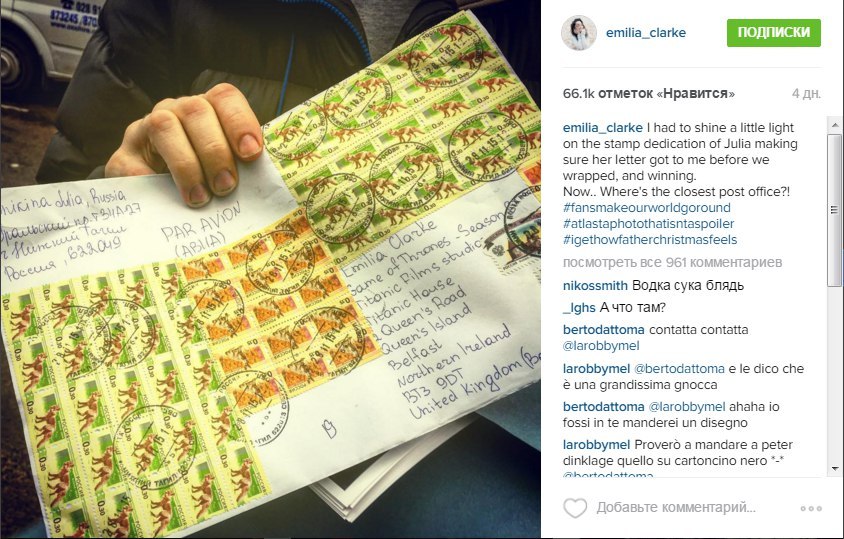 028 9
873245/870
emilia_clarke
ПОДПИСКИ
66.1k отметок «Нравится»
4 дн.
emilia_clarke I had to shine a little light
on the stamp dedication of Julia making
sure her letter got to me before we
wrapped, and winning.
Now.. Where's the closest post office?!
#fansmakeourworldgoround
#atlastaphotothatisntaspoiler
#igethowfatherchristmasfeels
посмотреть все 961 комментариев
nikossmith Водка сука блядь
_lghs А что там?
bertodattoma contatta contatta
@larobbymel
larobbymel @bertodattoma e le dico che
è una grandissima gnocca
bertodattoma @larobbymel ahaha io
fossi in te manderei un disegno
larobbymel Proverò a mandare a peter
dinklage quello su cartoncino nero *-*
@bertodattoma
Добавьте комментарий...
Julia, Russia
Нижний Тагил
Россия, 622049
PAR AVION
(АВИА)
Emilia Clarke
Game of Thrones Season
Titanic Films studio
Titanic House
Queen's Road
Queen's Island
Belfast
Northern Ireland
BT3 9DT
United Kingdom
0.30
28.11.15